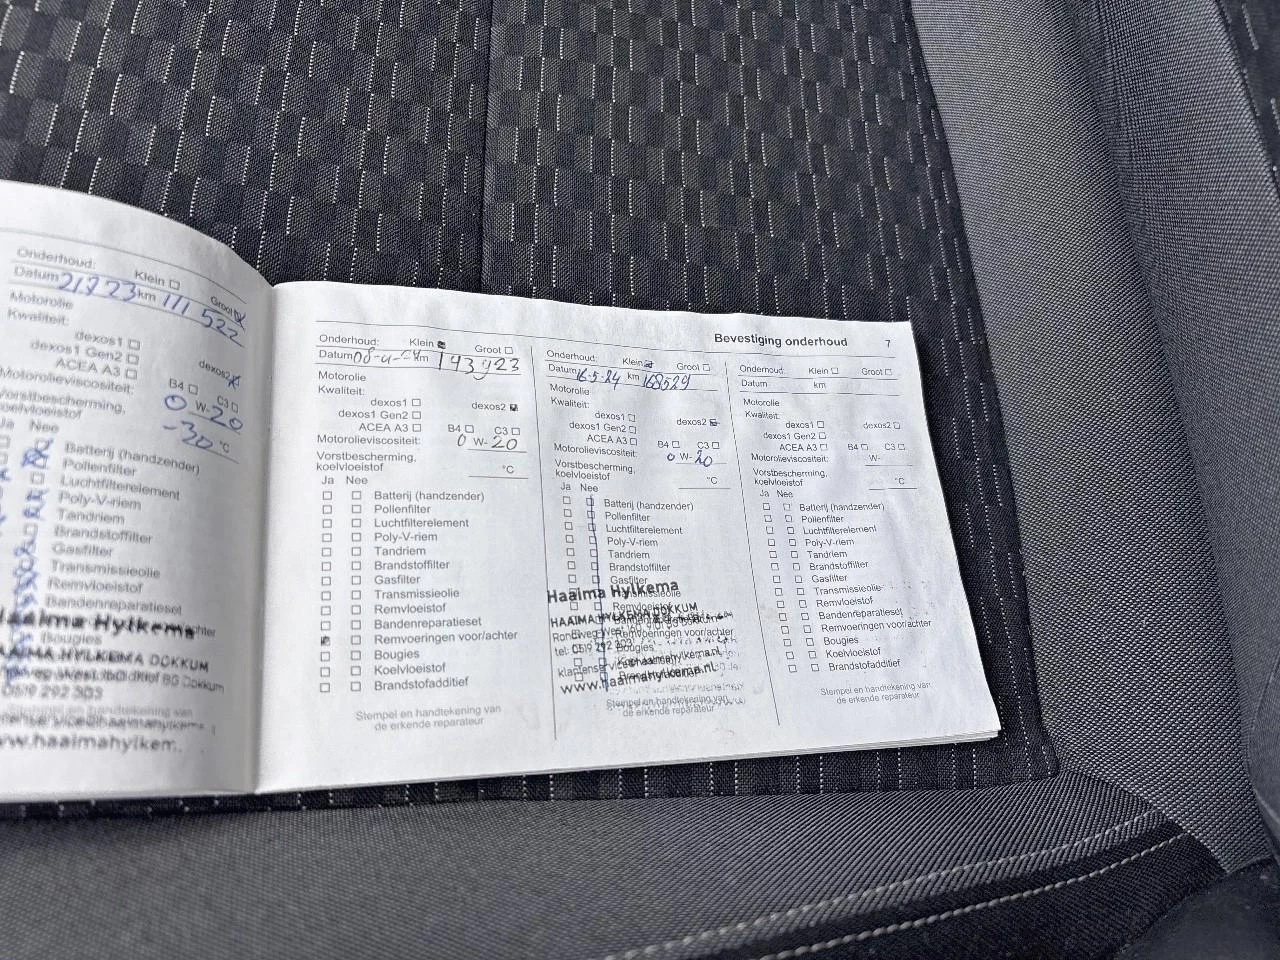 Onderhoud: Klein ☐ Groot ☒
Datum 21 7 23 km 111 522
Motorolie
Kwaliteit:
dexos1 ☐ dexos2 ☒
dexos1 Gen2 ☐
ACEA A3 ☐ B4 ☐ C3 ☐
Motorolieviscositeit: 0 W- 20
Vorstbescherming, koelvloeistof -30 °C
Ja Nee
Batterij (handzender)
Pollenfilter
Luchtfilterelement
Poly-V-riem
Tandriem
Brandstoffilter
Gasfilter
Transmissieolie
Remvloeistof
Bandenreparatieset
Haaima Hylkema
Bougies
HAAIMA HYLKEMA DOKKUM
0519 292 303
Bevestiging onderhoud 7
Onderhoud: Klein ☒ Groot ☐
Datum 08-4-24 km 143923
Motorolie
Kwaliteit:
dexos1 ☐ dexos2 ☒
dexos1 Gen2 ☐
ACEA A3 ☐ B4 ☐ C3 ☐
Motorolieviscositeit: 0 W- 20
Vorstbescherming,
koelvloeistof °C
Ja Nee
☐ ☐ Batterij (handzender)
☐ ☐ Pollenfilter
☐ ☐ Luchtfilterelement
☐ ☐ Poly-V-riem
☐ ☐ Tandriem
☐ ☐ Brandstoffilter
☐ ☐ Gasfilter
☐ ☐ Transmissieolie
☐ ☐ Remvloeistof
☐ ☐ Bandenreparatieset
☒ ☐ Remvoeringen voor/achter
☐ ☐ Bougies
☐ ☐ Koelvloeistof
☐ ☐ Brandstofadditief
Stempel en handtekening van
de erkende reparateur
Onderhoud: Klein ☒ Groot ☐
Datum 16-5-24 km 168529
Motorolie
Kwaliteit:
dexos1 ☐ dexos2 ☒
dexos1 Gen2 ☐
ACEA A3 ☐ B4 ☐ C3 ☐
Motorolieviscositeit: 0 W- 20
Vorstbescherming,
koelvloeistof °C
Ja Nee
Batterij (handzender)
Pollenfilter
Luchtfilterelement
Poly-V-riem
Tandriem
Brandstoffilter
Gasfilter
Haaima Hylkema
Transmissieolie
Remvloeistof
HAAIMA HYLKEMA DOKKUM
Remvoeringen voor/achter
tel: 0519 292 303
Bougies
www.haaimahylkema.nl
Stempel en handtekening van
de erkende reparateur
Onderhoud: Klein ☐ Groot ☐
Datum km
Motorolie
Kwaliteit:
dexos1 ☐ dexos2 ☐
dexos1 Gen2 ☐
ACEA A3 ☐ B4 ☐ C3 ☐
Motorolieviscositeit: W-
Vorstbescherming,
koelvloeistof °C
Ja Nee
☐ ☐ Batterij (handzender)
☐ ☐ Pollenfilter
☐ ☐ Luchtfilterelement
☐ ☐ Poly-V-riem
☐ ☐ Tandriem
☐ ☐ Brandstoffilter
☐ ☐ Gasfilter
☐ ☐ Transmissieolie
☐ ☐ Remvloeistof
☐ ☐ Bandenreparatieset
☐ ☐ Remvoeringen voor/achter
☐ ☐ Bougies
☐ ☐ Koelvloeistof
☐ ☐ Brandstofadditief
Stempel en handtekening van
de erkende reparateur